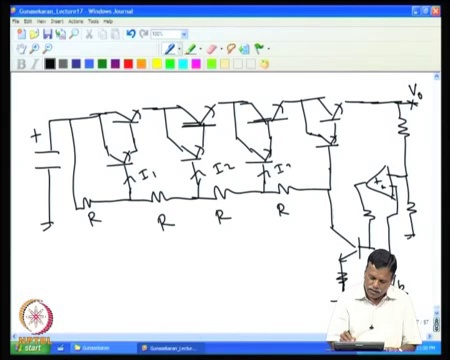 Gunasekaran_Lecture17 - Windows Journal
File Edit View Insert Actions Tools Help
100%
B I
V0
+
I1
I2
R
R
R
R
NPTEL
start
Gunasekaran
Gunasekaran_Lectu...